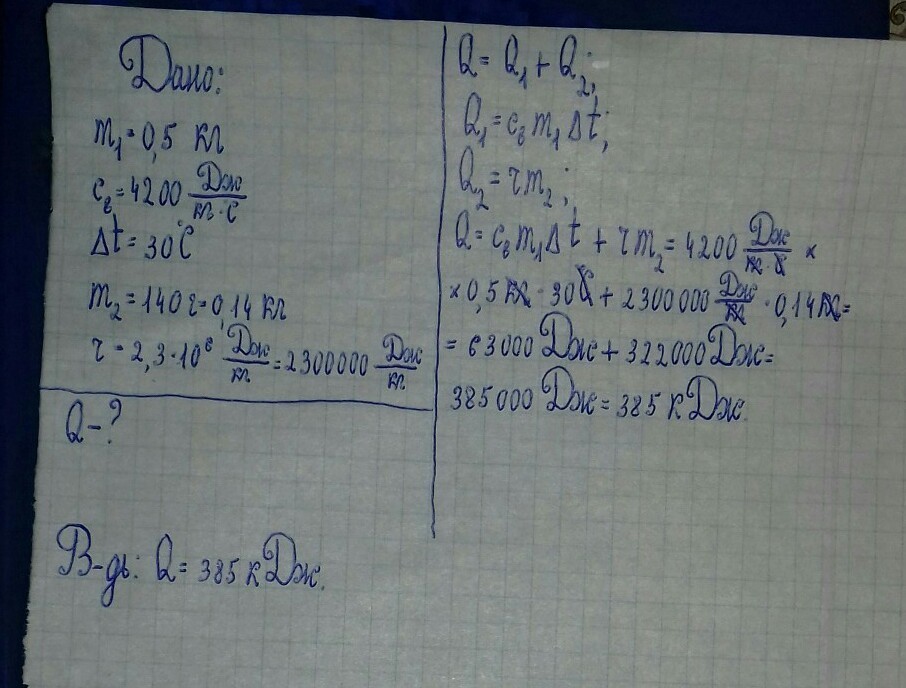 Дано:
m₁=0,5 кг
cв=4200 Дж/кг·°C
Δt=30°C
m₂=140г=0,14 кг
r=2,3·10⁶ Дж/кг=2300000 Дж/кг
Q-?
В-дь: Q=385 кДж.
Q=Q₁+Q₂;
Q₁=cвm₁Δt;
Q₂=rm₂;
Q=cвm₁Δt+rm₂=4200 Дж/кг·°C ×
×0,5кг·30°C+2300000 Дж/кг·0,14кг=
=63000 Дж+322000 Дж=
385000 Дж=385 кДж.